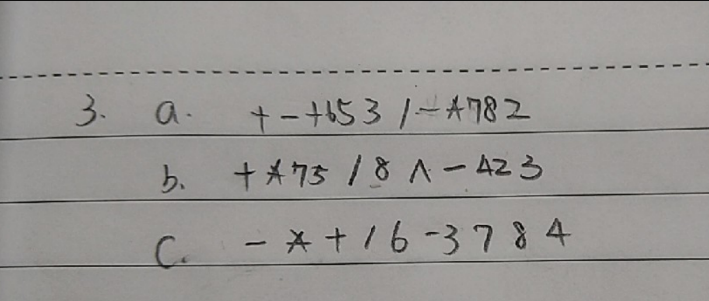 3. a. + - + 6 5 3 / - * 7 8 2
b. + * 7 5 / 8 ^ - 4 2 3
c. - * + 1 6 - 3 7 8 4